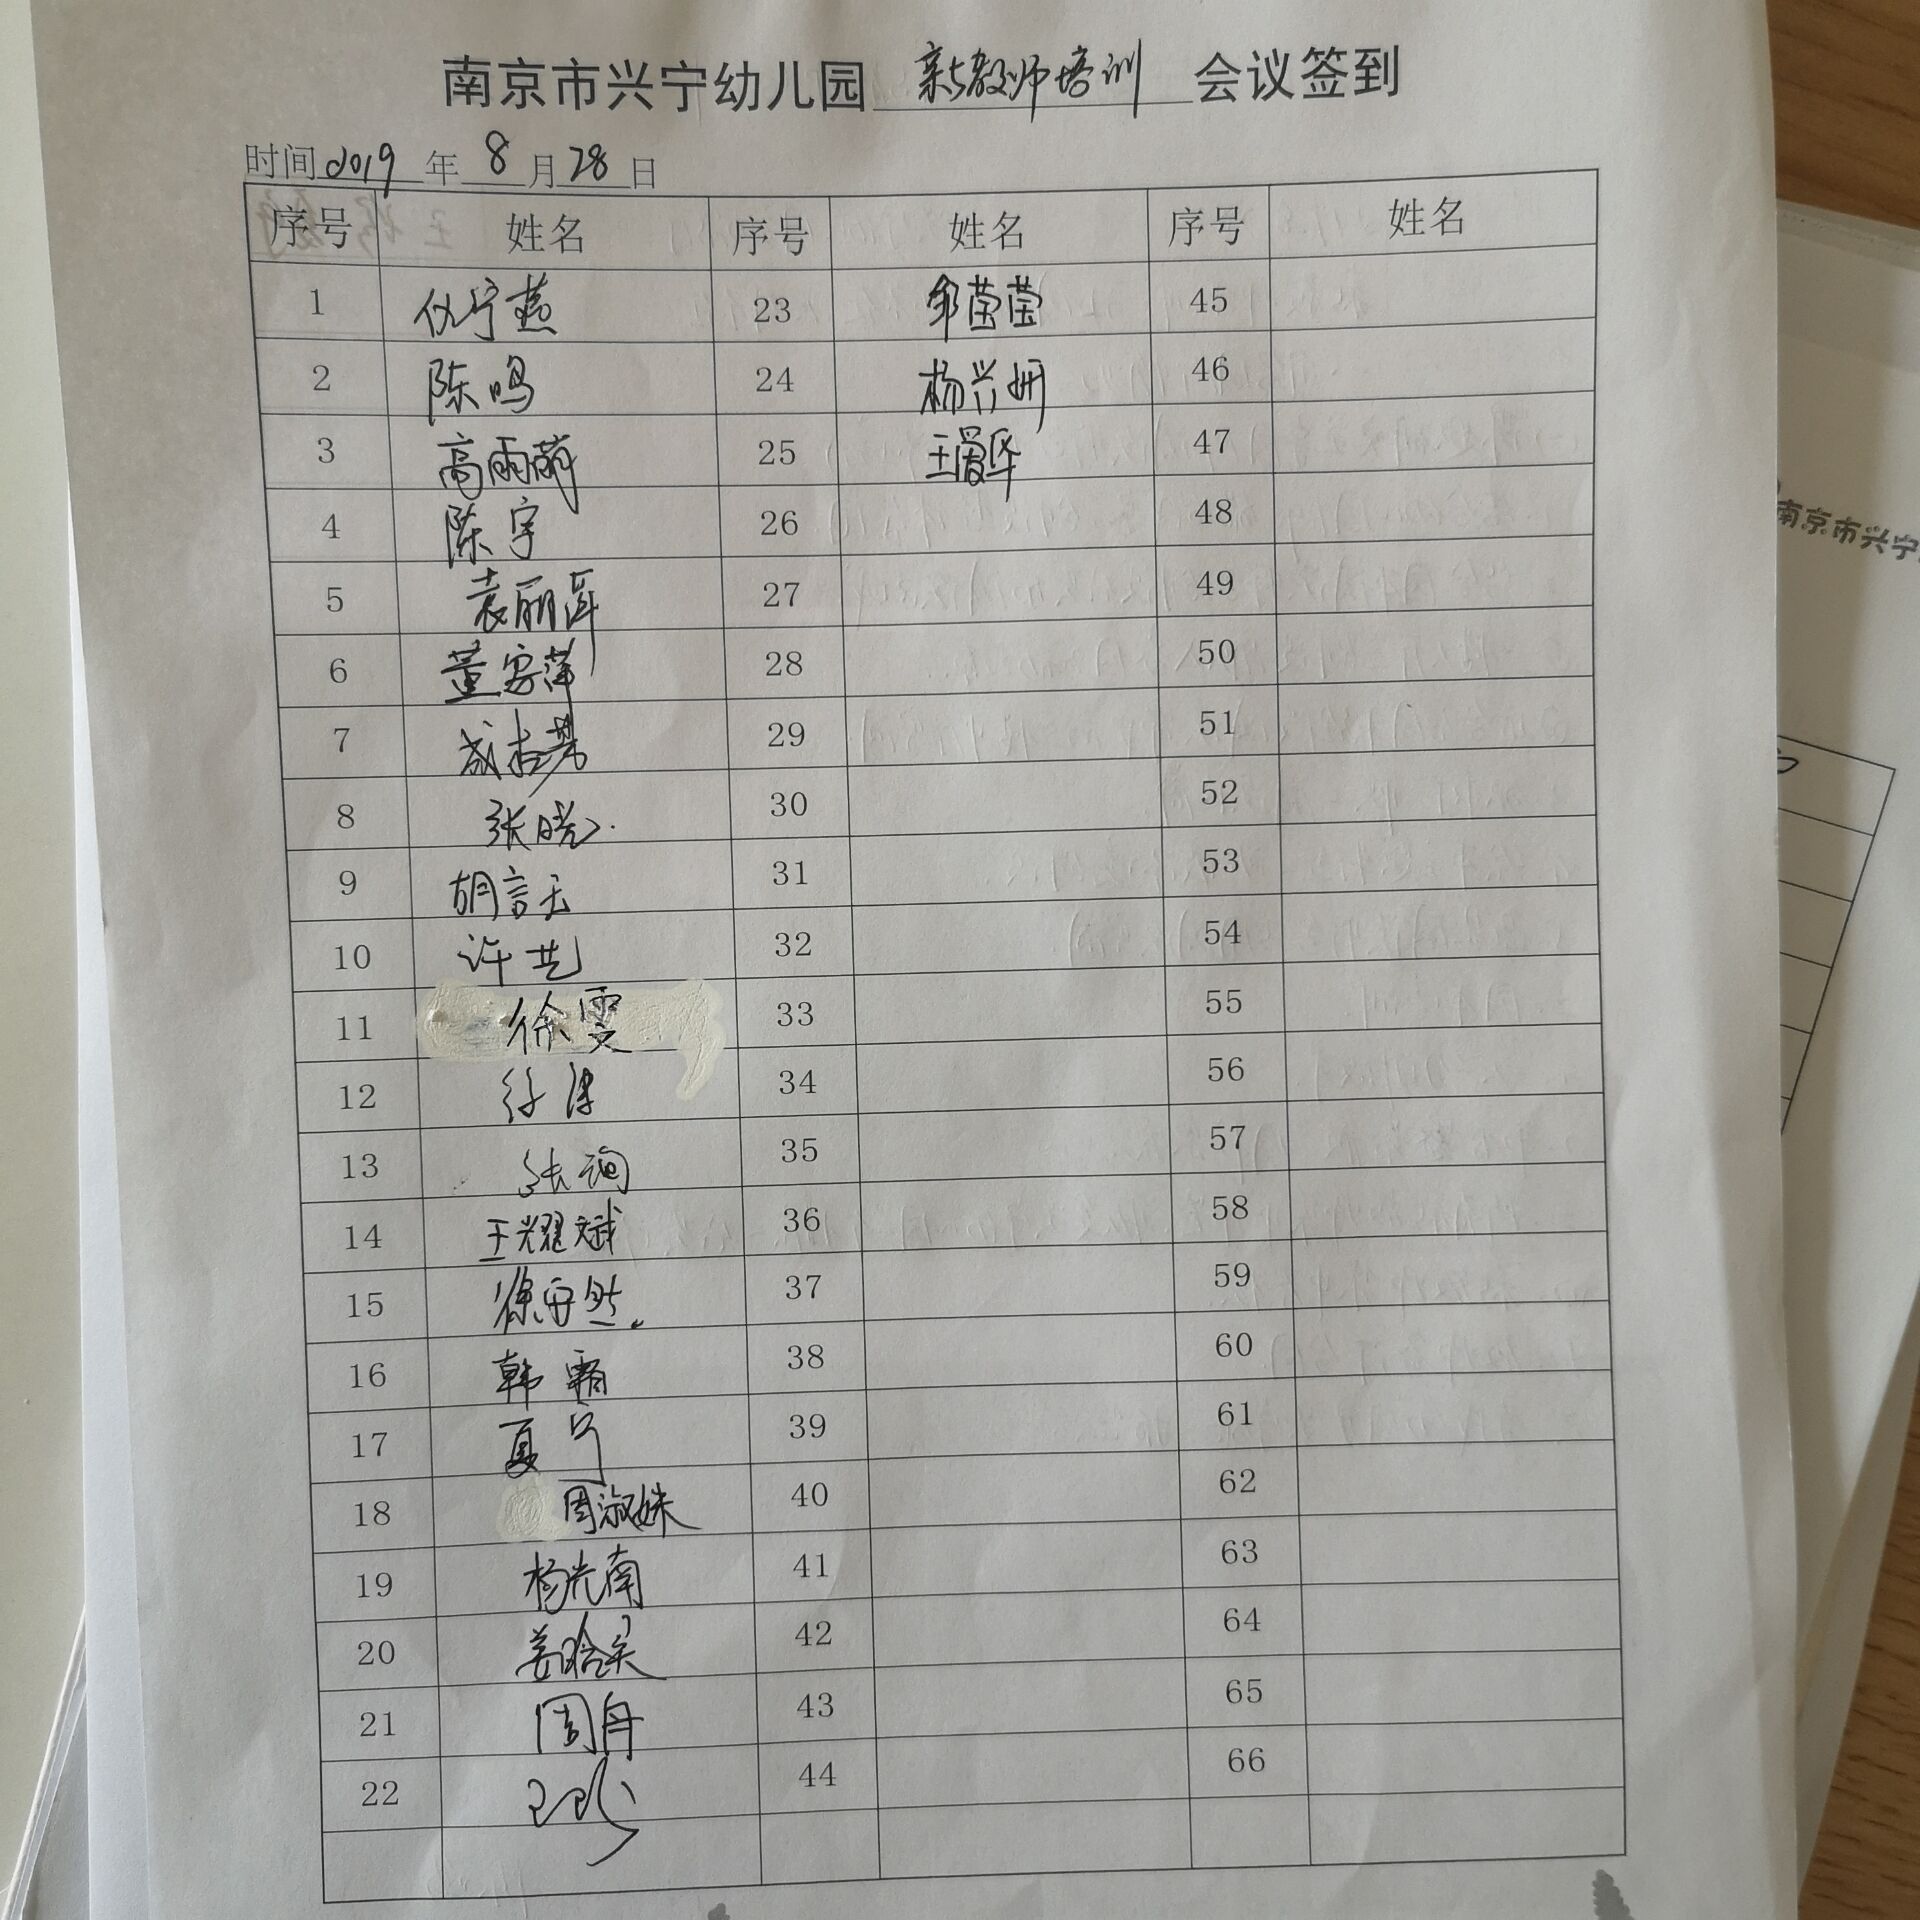 南京市兴宁幼儿园 新教师培训 会议签到
时间 2019 年 8 月 28 日
序号 姓名 序号 姓名 序号 姓名
1 仇宁燕 23 邹莹莹 45
2 陈鸣 24 杨兴妍 46
3 高雨萌 25 王爱华 47
4 陈宇 26 48
5 袁丽萍 27 49
6 董宛萍 28 50
7 29 51
8 张晓 30 52
9 胡言玉 31 53
10 许艺 32 54
11 徐雯 33 55
12 34 56
13 张询 35 57
14 王耀斌 36 58
15 徐安然 37 59
16 韩霜 38 60
17 夏 39 61
18 周淑姝 40 62
19 杨光南 41 63
20 姜晗 42 64
21 周舟 43 65
22 44 66
南京市兴宁